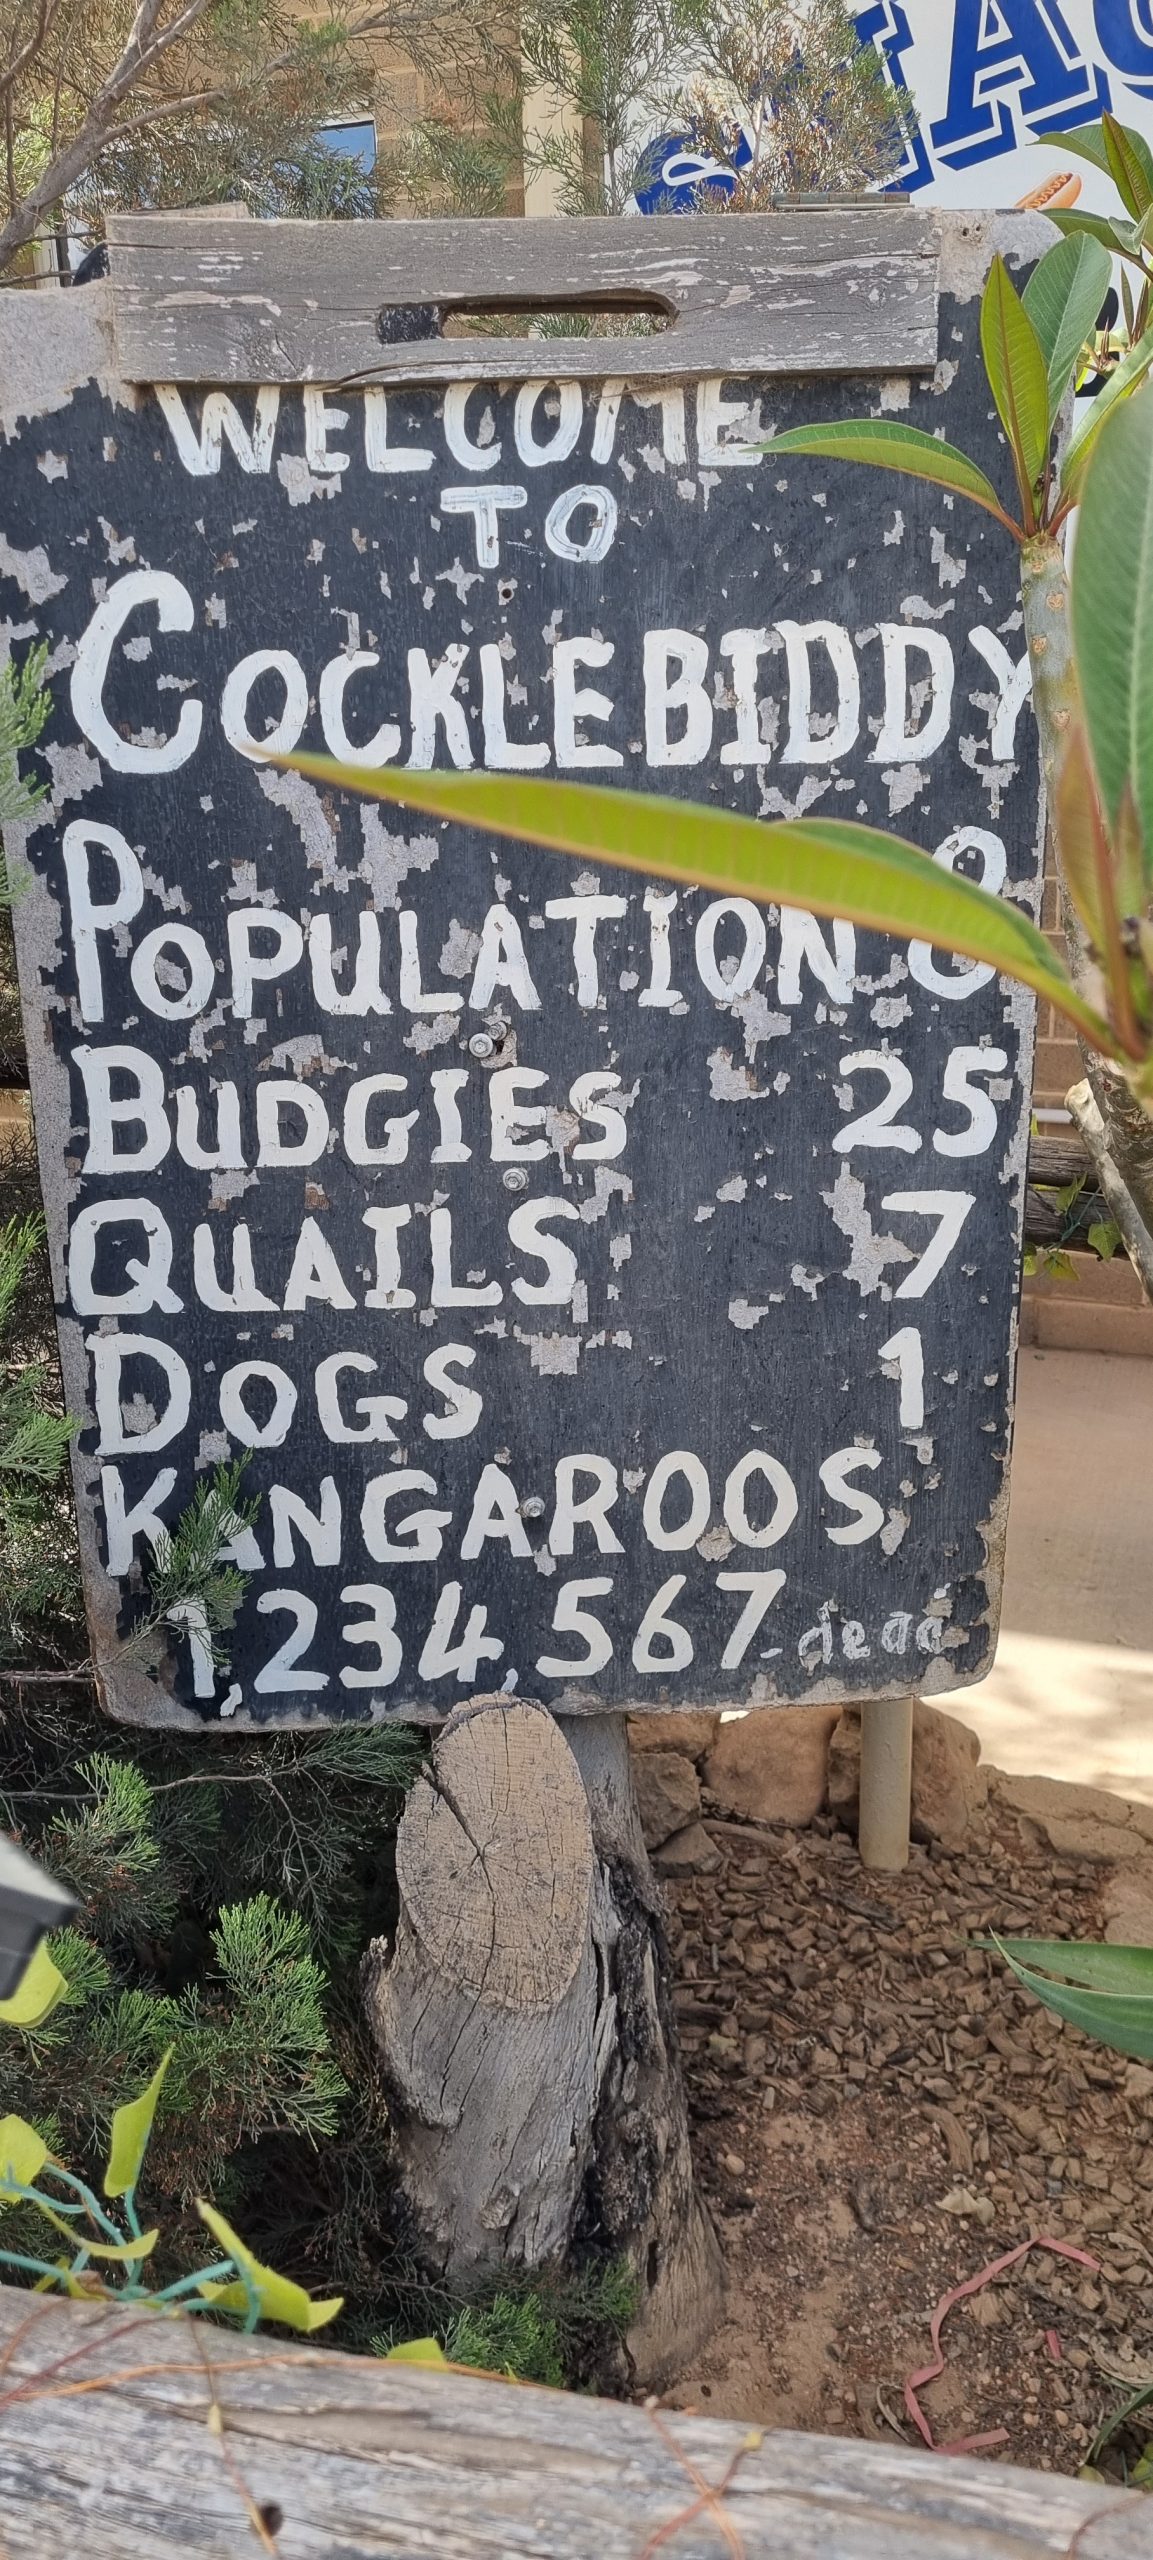 WELCOME
TO
COCKLEBIDDY
POPULATION 8
BUDGIES 25
QUAILS 7
DOGS 1
KANGAROOS
1,234,567-dead